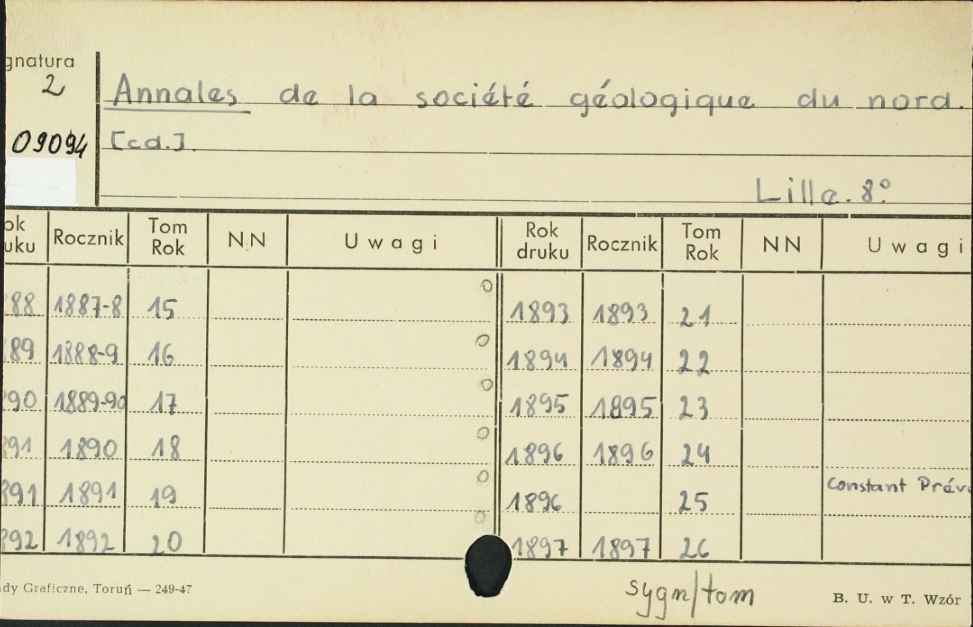 gnatura
2
Annales de la société géologique du nord.
09094
[cd.]
Lille. 8°.
ok uku Rocznik Tom Rok NN Uwagi Rok druku Rocznik Tom Rok NN Uwagi
88 1887-8 15 1893 1893 21
89 1888-9 16 1894 1894 22
890 1889-90 17 1895 1895 23
891 1890 18 1896 1896 24
891 1891 19 1896 25 Constant Prév
892 1892 20 1897 1897 26
dy Graficzne, Toruń — 249-47
sygn/tom
B. U. w T. Wzór